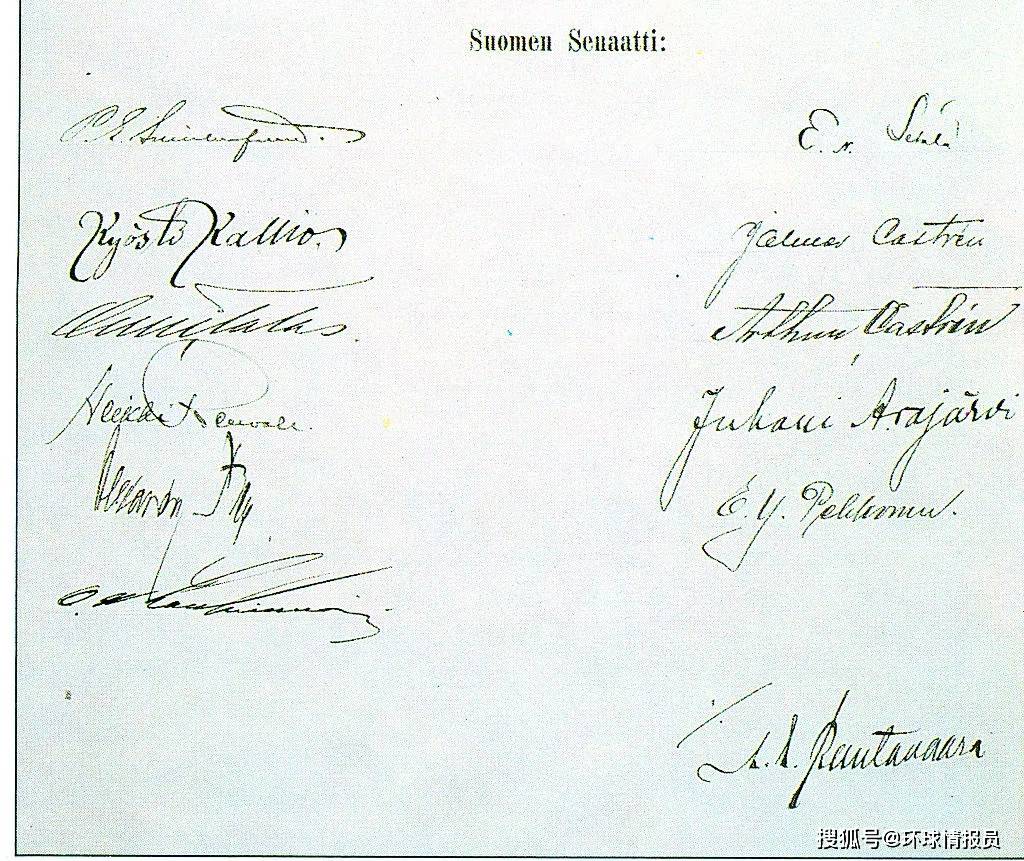 Suomen Senaatti:
P. E. Svinhufvud.
E. N. Setälä
Kyösti Kallio.
Jalmar Castrén
Onni Talas.
Arthur Castrén
Heikki Renvall.
Juhani Arajärvi
Alexander Frey.
E. Y. Pehkonen.
O. W. Louhivuori
A. E. Rautavaara
搜狐号@环球情报员